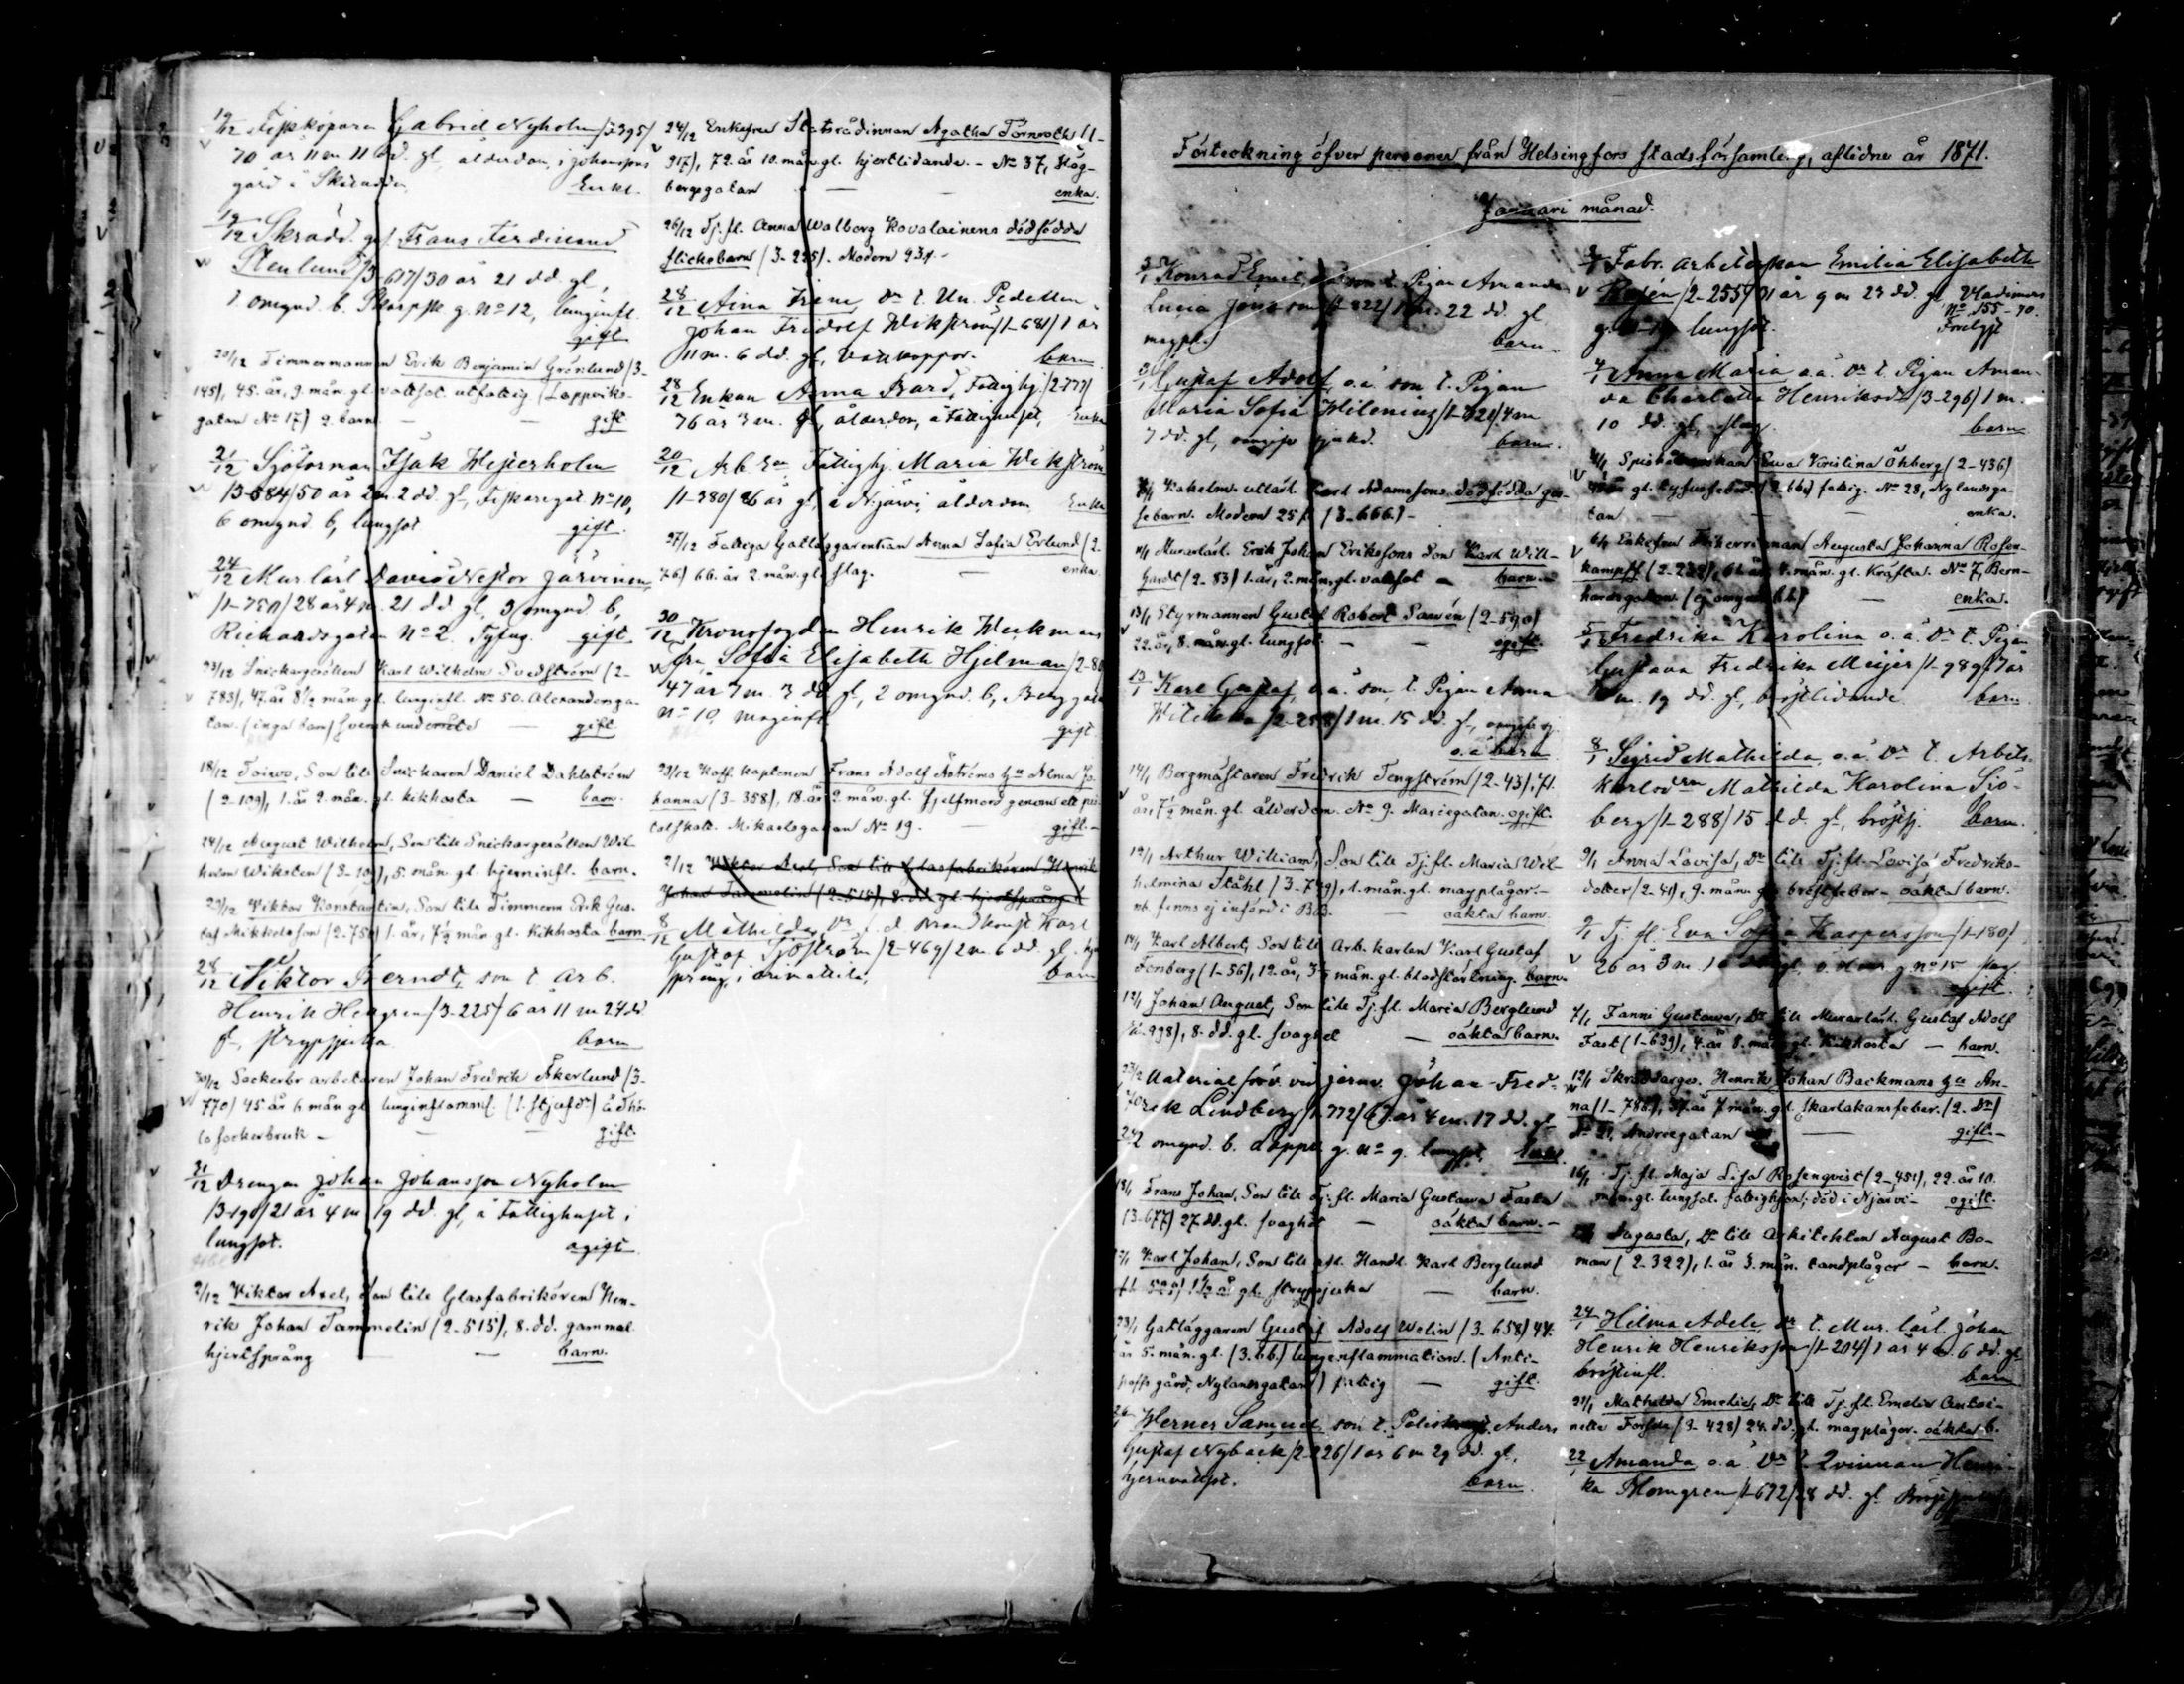 19/12 Fiskköparen Gabriel Nyholm /3-395/
70 år 11 m 11 dd. gl, ålderdom, i Johanssons
gård i Skatudden Enkl.
19/12 Skrädd. ges. Frans Ferdinand
Stenlund /3-617/ 30 år 21 dd. gl,
1 omynd. b. Skarpsk. g. No 12, lunginfl.
gift
20/12 Timmermannen Erik Benjamin Grönlund /3-
145), 45. år, 9. mån. gl. vattsot. utfattig (Lappviks-
gatan No 17) 2. barn — gift
21/12 Sjötorman Isak Westerholm
/3-584/ 50 år 2 m. 2 dd. gl, Fiskaregat. No 10,
6 omynd. b, lungsot gift.
24/12 Mur. lärl. David Nestor Järvinen
/1-750/ 28 år 4 m. 21 dd. gl, 3 omynd b,
Richardsgatan No 2. Tyfus. gift
23/12 Snickargesällen Karl Wilhelm Svedström (2-
783), 47. år 8 1/2 mån. gl. lunginfl. No 50. Alexandersga-
tan. (inga barn) svensk undersåte — gift
18/12 Toivo, Son till Snickaren Daniel Dahlström
(2-109), 1. år 2. mån. gl. kikhosta — barn.
24/12 August Wilhelm, Son till Snickargesällen Wil-
helm Wiksten (3-109), 5. mån. gl. hjerninfl. barn.
29/12 Viktor Konstantin, Son till Timmerm Erik Gus-
taf Mikkelsson (2-750) 1. år, 7 1/2 mån gl. Kikhosta barn
28/12 Viktor Berndt, son t. Arb.
Henrik Hellgren /3-225/ 6 år 11 m 27 dd
gl, strypsjuka barn
30/12 Sockerbr. arbetaren Johan Fredrik Åkerlund (3-
770) 45 år 6 mån gl lunginflammat. (1. styfdr) å Thö-
lo sockerbruk — gift.
31/12 Drengen Johan Johansson Nyholm
/3-190/ 21 år 4 m 19 dd. gl, å Fattighuset i
lungsot. ogift
2/12 Viktor Axel, Son till Glasfabrikören Hen-
rik Johan Tammelin (2-515), 8. dd. gammal.
hjertsprång — barn.
24/12 Enkefru Statsrådinnan Agatha Törnroth (1-
917), 72. år 10. mån. gl. hjertlidande. - No 37, Hög-
bergsgatan — enka.
26/12 Tj. fl. Anna Walborg Kovalainens dödfödda
flickebarn (3-225). Modern 23 år.
28/12 Aina Irene, dr t. Un. Pedellen
Johan Fridolf Wikström /1-681/ 1 år
11 m. 6 dd. gl, Vattkoppor. barn
28/12 Enkan Anna Bard, Fattighj. /2-777/
76 år 3 m. gl, ålderdom, å Fattighuset, Enka
20/12 Arb. En Fattighj. Maria Wikström
/1-380/ 86 år gl, å N.järvi, ålderdom Enka
27/12 Fattiga Gatläggarenkan Anna Sofia Erlund (2-
76) 66. år 2. mån. gl. slag. — enka.
30/12 Kronofogden Henrik Weckmans
fru Sofia Elisabeth Hjelman /2-80
47 år 7 m. 3 dd gl, 2 omynd. b, Berggatan
No 10. maginfl gift
23/12 Koff. kaptenen Frans Adolf Åströms Hu Alma Jo-
hanna (3-358), 18. år 2. mån. gl. Sjelfmord genom ett pis-
tolskott. Mikaelsgatan No 19. — gift.-
2/12 Viktor Axel, Son till Glasfabrikören Henrik
Johan Tammelin (2-515), 8. dd. gl. hjertsprång
8/12 Mathilda, dr t. d. Brandkonst. Karl
Gustaf Sjöström /2-469/ 2 m. 6 dd. gl. hjert
språng, i barn
Förteckning öfver personer från Helsingfors stadsförsamling, aflidne år 1871.
Januari månad.
3/1 Konrad Emil, o.ä. son t. Pigan Amanda
Lucia Jonsson /1-822/ 1 m. 22 dd. gl
magpl. barn
2/1 Gustaf Adolf, o.ä. son t. Pigan
Maria Sofia Hilenius /1-721/ 4 m
7 dd. gl, sjukd. barn.
Kakelm. utlärl. Karl Adamssons dödfödda gos-
sebarn. Modern 25 år (3-666)-
11/1 Murarlärl. Erik Johan Erikssons Son Karl Will-
gardt (2-83) 1. år, 2. mån. gl. vattsot — barn.
13/1 Styrmannen Gustaf Robert Saurén (2-540)
22. år, 8. mån. gl. lungsot — ogift.
13/1 Karl Gustaf, o.ä. son, t. Pigan Anna
Witikka /2-258/ 1 m. 15 dd. gl,
o.ä barn
14/1 Bergmästaren Fredrik Tengström (2-43), 71.
år, 7 1/2 mån. gl. ålderdom. No 9. Mariegatan. ogift.
19/1 Arthur William, Son till Tj. fl. Maria Wil-
helmina Ståhl (3-749), 1. mån. gl. magplågor.-
nb. finns ej införd i B.B. — oäkta barn
14/1 Karl Albert, Son till Arb. karlen Karl Gustaf
Forsberg (1-56), 12. år, 3 1/2 mån. gl. blodstörtning. barn.
12/1 Johan August, Son till Tj. fl. Maria Berglund
(1-998), 8. dd. gl. svaghet — oäkta barn.
Materialförv. vid jernv. Johan Fred-
rik Lindberg /1-772/ 67. år 4 m. 17 dd. gl
2 omynd. b. Loppe. g. No 9. lungsot, Enkl.
18/1 Frans Johan, Son till Tj. fl. Maria Gustava Fasta
(3-677) 27. dd. gl. svaghet — oäkta barn.-
Karl Johan, Son till afl. Handl. Karl Berglund
1 1/2 år gl. strypsjuka — barn.
23/1 Gatläggaren Gustaf Adolf Welin (3-658) 44.
år 5. mån. gl. (3. bb.) lunginflammation. (Anti-
poffs gård, Nylandsgatan) fattig — gift.
26/1 Werner Samuel, son t. Poliskonst. Anders
Gustaf Nybäck /2-226/ 1 år 6 m 29 dd. gl,
hjernvattsot. barn.
3/1 Fabr. arbeterskan Emilia Elisabeth
Rosén /2-255/ 31 år 9 m 23 dd. gl, Vladimirs
g. lungsot. No 155-70.
Frelyst
4/1 Anna Maria o.ä. dr t. Pigan Aman-
da Charlotta Henriksdr /3-296/ 1 m.
10 dd. gl, slag. barn
4/1 Spishållerskan Eva Kristina Öhberg (2-436)
gl. tyfusfeber. fattig. No 28, Nylandsga-
tan — enka.
6/1 Enkefru Augusta Johanna Rosen-
kampff (2-222), 61 år 8. mån. gl. Kräfta. No 7, Bern-
hardsgatan — enka.
5/1 Fredrika Karolina o.ä. dr t. Pigan
Gustava Fredrika Meijer /1-989/ 7 år
m. 19 dd. gl, bröstlidande barn
8/1 Sigrid Mathilda, o.ä. dr t. Arbets-
karlsdrn Mathilda Karolina Sjö-
berg /1-288/ 15 dd. gl, bröstsj. barn.
9/1 Anna Lovisa, Dr till Tj. fl. Lovisa Fredriks-
dotter /2-41), 9. mån. gl. bröstfeber - oäkta barn.
9/1 Tj. fl. Eva Sofia Kaspersson /1-180/
26 år 3 m. gl, g No 15 slag.
ogift.
7/1 Fanni Gustava, Dr till Murarlärl. Gustaf Adolf
Fast (1-639), 4. år 8. mån. gl. Kikhosta — barn.
12/1 Skräddarges. Henrik Johan Backmans Hu An-
na (1-788), 37. år 7. mån. gl. skarlakansfeber. (2. Dr)
No 21, Andreegatan — gift.-
16/1 Tj. fl. Maja Lisa Rosenqvist (2-451), 22. år 10.
mån. gl. lungsot. fattighjon, död i Njärvi - ogift.
Augusta, Dr till Arkitekten August Bo-
man (2-322), 1. år 3. mån. tandplågor - barn.
24/1 Hilma Adele, dr t. Mur. lärl. Johan
Henrik Henriksson /1-204/ 1 år 4 m. 6 dd. gl
bröstinfl. barn
21/1 Mathilda Emelie, Dr till Tj. fl. Emelie Antoi-
nette Forsell (3-428) 24. dd. gl. magplågor. oäkta b.
22/1 Amanda o.ä. Dr t. Qvinnan Henri-
ka Blomgren /1-672/ 28 dd. gl.